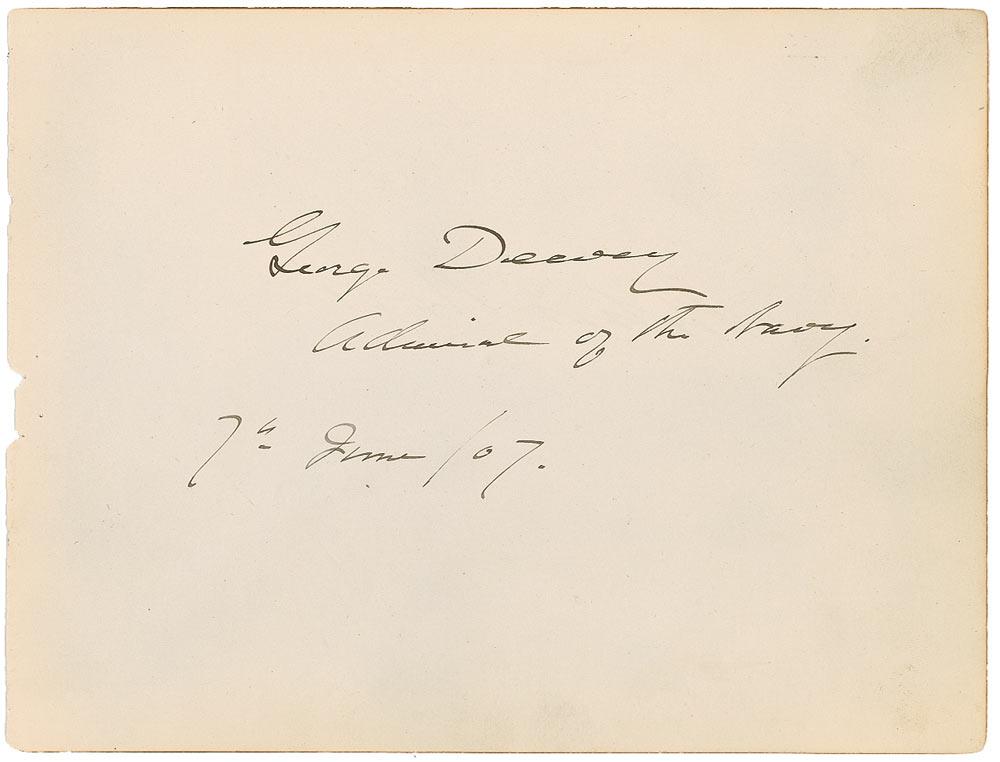 George Dewey
Admiral of the Navy.
7th June /07.